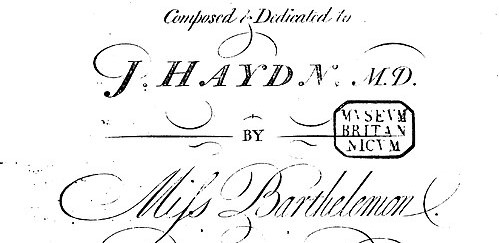 Composed & Dedicated to
J. HAYDN. M.D.
BY
MVSEVM
BRITAN
NICVM
Miſs Barthelemon.